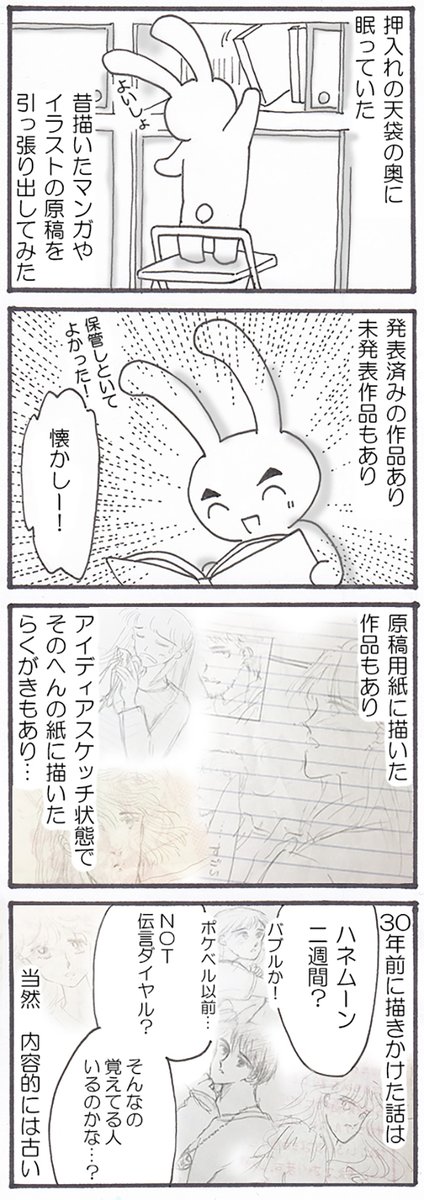 押入れの天袋の奥に
眠っていた
よいしょ
昔描いたマンガや
イラストの原稿を
引っ張り出してみた
発表済みの作品あり
未発表作品もあり
保管しといて
よかった!
懐かしー!
原稿用紙に描いた
作品もあり
アイディアスケッチ状態で
そのへんの紙に描いた
らくがきもあり…
30年前に描きかけた話は
ハネムーン
二週間?
バブルか!
ポケベル以前…
NOT
伝言ダイヤル?
そんなの
覚えてる人
いるのかな…?
当然 内容的には古い